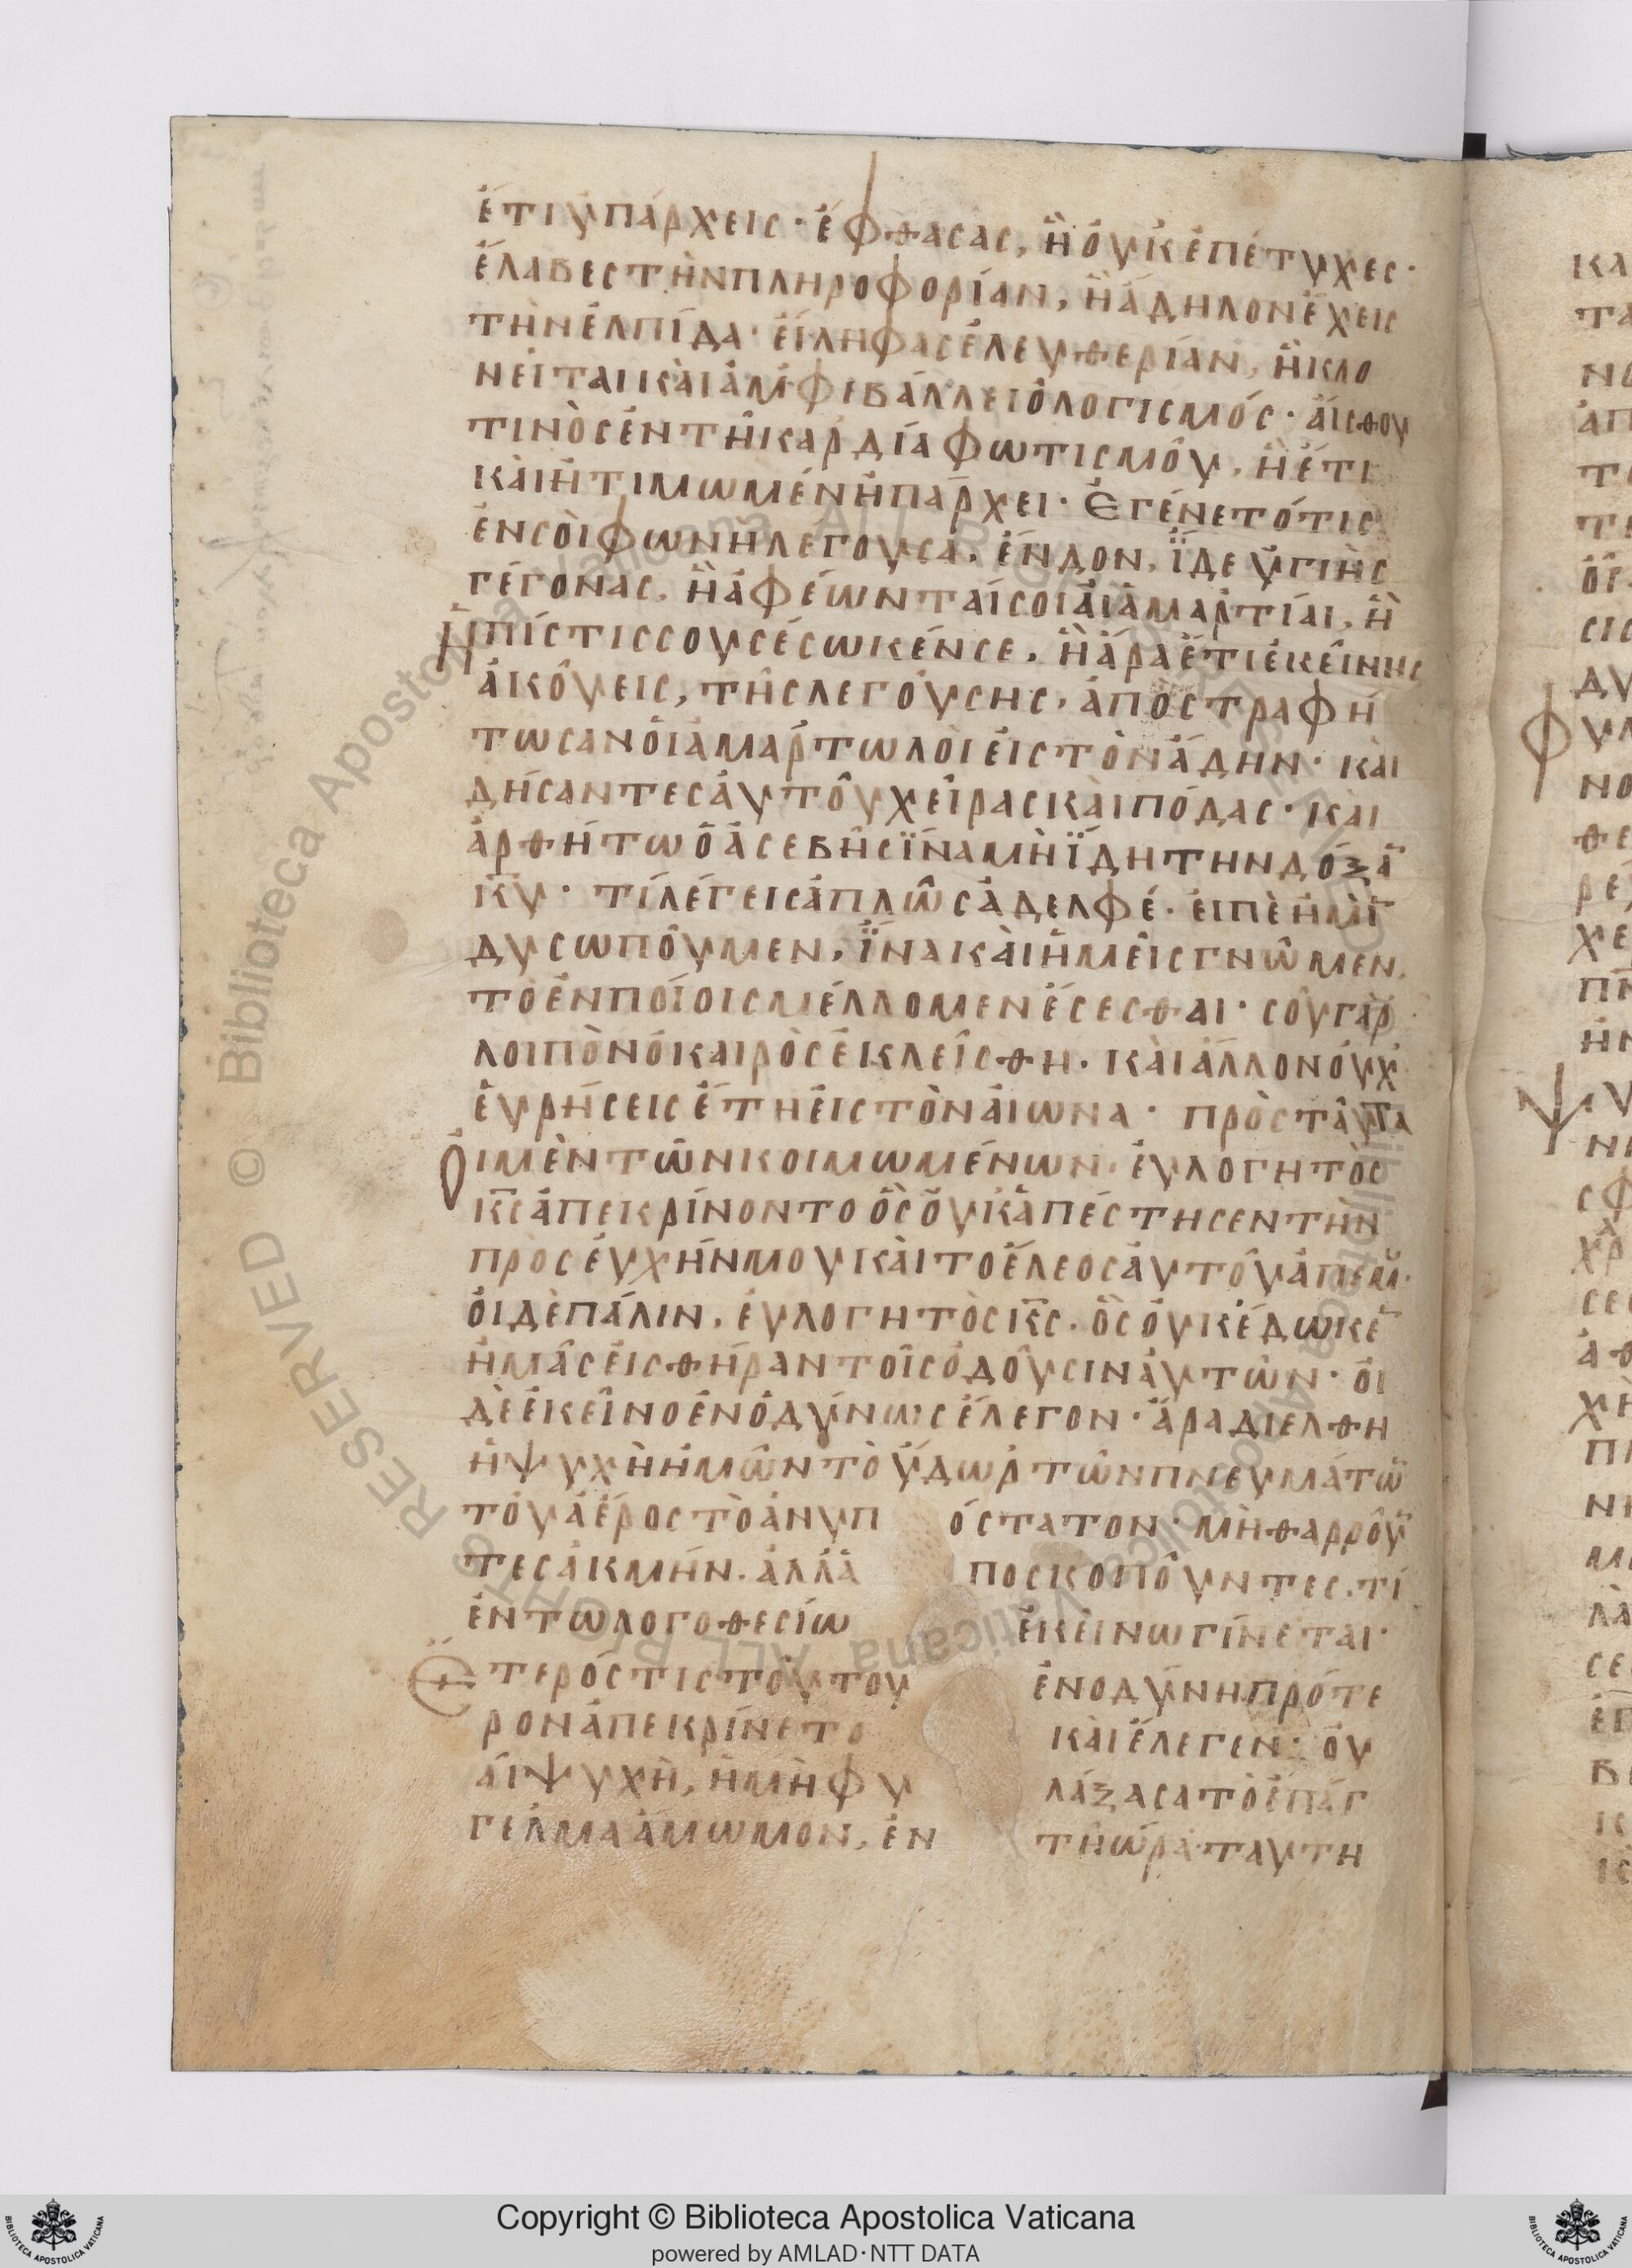 ἔτι ὑπάρχεις· ἔφθασας, ἢ ὀυκ ἐπέτυχες·
ἔλαβες τὴν πληροφορίαν, ἢ ἄδηλον ἔχεις
τὴν ἐλπίδα· ἐίληφας ἐλευθερίαν, ἢ κλο
νεῖται κὰι ἀμφιβάλλει ὁ λογισμός· ἄισθου
τινὸς ἐν τῆ καρδία φωτισμοῦ, ἢ ἔτι
κὰι ἠτιμωμένη πάρχει· Ἐγένετό τις
ἐν σὸι φωνὴ λέγουσα, ἔνδον, ϊδε ὑγιὴς
γέγονας, ἢ ἀφέωνται σοι ἁι ἁμαρτίαι, ἢ
ἡ πίστις σου σέσωκέν σε, ἢ ἄρα ἔτι ἐκείνης
ἀκούεις, τῆς λεγούσης, ἀποστραφή
τωσαν ὁι ἁμαρτωλὸι ἐις τὸν ἄδην· κὰι
δήσαντες ἀυτοῦ χεῖρας κὰι πόδας· κὰι
ἀρθήτω ὁ ἀσεβὴς ϊνα μὴ ϊδη την δόξᾱ
κ̄υ· τί λέγεις ἁπλῶς ἀδελφέ· ἐιπὲ ἡμῖ̄
δυσωποῦμεν, ϊνα κὰι ἡμεῖς γνῶμεν,
τὸ ἐν ποίοις μέλλομεν ἔσεσθαι· σοῦ γὰρ
λοιπὸν ὁ καιρὸς ἐκλείσθη· κὰι ἄλλον ὀυχ
ἑυρήσεις ἔτη ἐις τὸν ἀιωνα· πρὸς ταῦτα
ὁι μὲν τῶν κοιμωμένων, ἐυλογητὸς
κ̄ς ἀπεκρίνοντο ὃς ὀυκ ἀπέστησεν τὴν
πρὸσἐυχήν μου κὰι το ἔλεος ἀυτοῦ ἀπ ἐμ̄·
ὁι δὲ πάλιν, ἐυλογητὸς κ̄ς, ὃς ὀυκ ἔδωκε̄
ἡμᾶς ἐις θήραν τοῖς ὀδοῦσιν ἀυτῶν· ὁι
δὲ ἐκεῖνο ἐνοδύνως ἔλεγον· ἄρα διελθη
ἡ ψυχὴ ἡμῶν τὸ ὕδωρ τῶν πνευμάτω̄
τοῦ ἀέρος τὸ ἀνυπόστατον· μὴ θαρροῦ̄
τες ἀκμήν· ἀλλ' ἀποσκοποῦντες, τί
ἐν τω λογοθεσίω ἐκὲινω γίνεται·
Ἕτερός τις τούτου ἐνοδύνη πρότε
ρον ἀπεκρίνετο κὰι ἔλεγεν· ὀυ
άι ψυχὴ, ἡ μὴ φυλάξασα τὸ ἐπάγ
γελμα ἄμωμον, ἐν τῆ ὥρα ταυτη
Copyright © Biblioteca Apostolica Vaticana
powered by AMLAD·NTT DATA